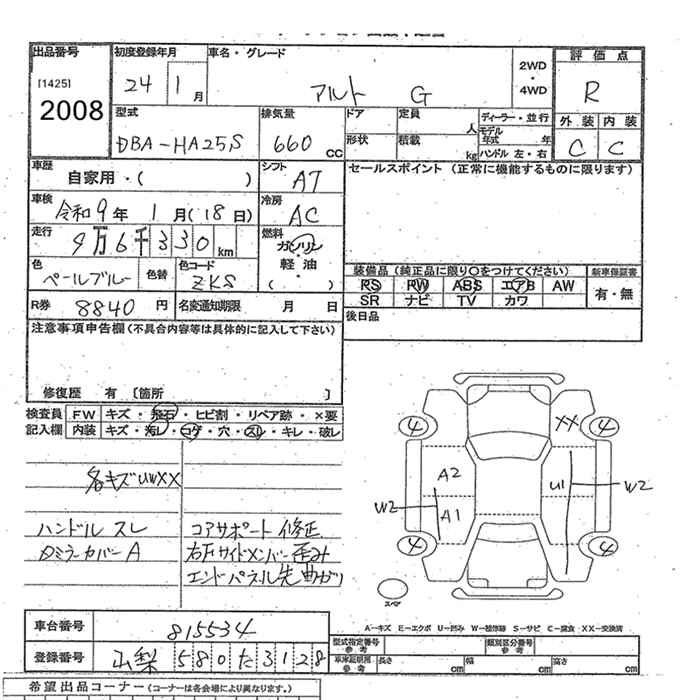 出品番号 初度登録年月 車名・グレード 2WD・4WD 評価点
[1425] 24 1月 アルト G R
2008
型式 排気量 ドア 定員 人 ディーラー・並行 外装 内装
DBA-HA25S 660cc 形状 積載 kg モデル年式 年 ハンドル 左・右 C C
車歴 シフト セールスポイント (正常に機能するものに限ります)
自家用・( ) AT
車検 冷房
令和9年 1月(18日) AC
走行 燃料
9万6千330km ガソリン・軽油・( )
色 色替 色コード 装備品 (純正品に限り○をつけてください) 新車保証書
ペールブルー ZKS PS PW ABS エアB AW 有・無
SR ナビ TV カワ
R券 8840円 名変通知期限 月 日 後日品
注意事項申告欄 (不具合内容等は具体的に記入して下さい)
修復歴 有 〔箇所
検査員 FW キズ・飛石・ヒビ割・リペア跡・×要
記入欄 内装 キズ・汚レ・コゲ・穴・スレ・キレ・破レ
各キズUWXX
ハンドル スレ コアサポート 修正
右Fサイドメンバー歪み
エンドパネル先曲がり
4 XX 4
A2 U1
W2 A1 W2
4 4
スペア
A-キズ E-エクボ U-凹み W-補修跡 S-サビ C-腐食 XX-交換済
車台番号 815534 型式指定番号 参考 類別区分番号 参考
登録番号 山梨 580 た 3128 車庫証明用 参考 長さ cm 幅 cm 高さ cm
希望出品コーナー (コーナーは各会場により異なります。)